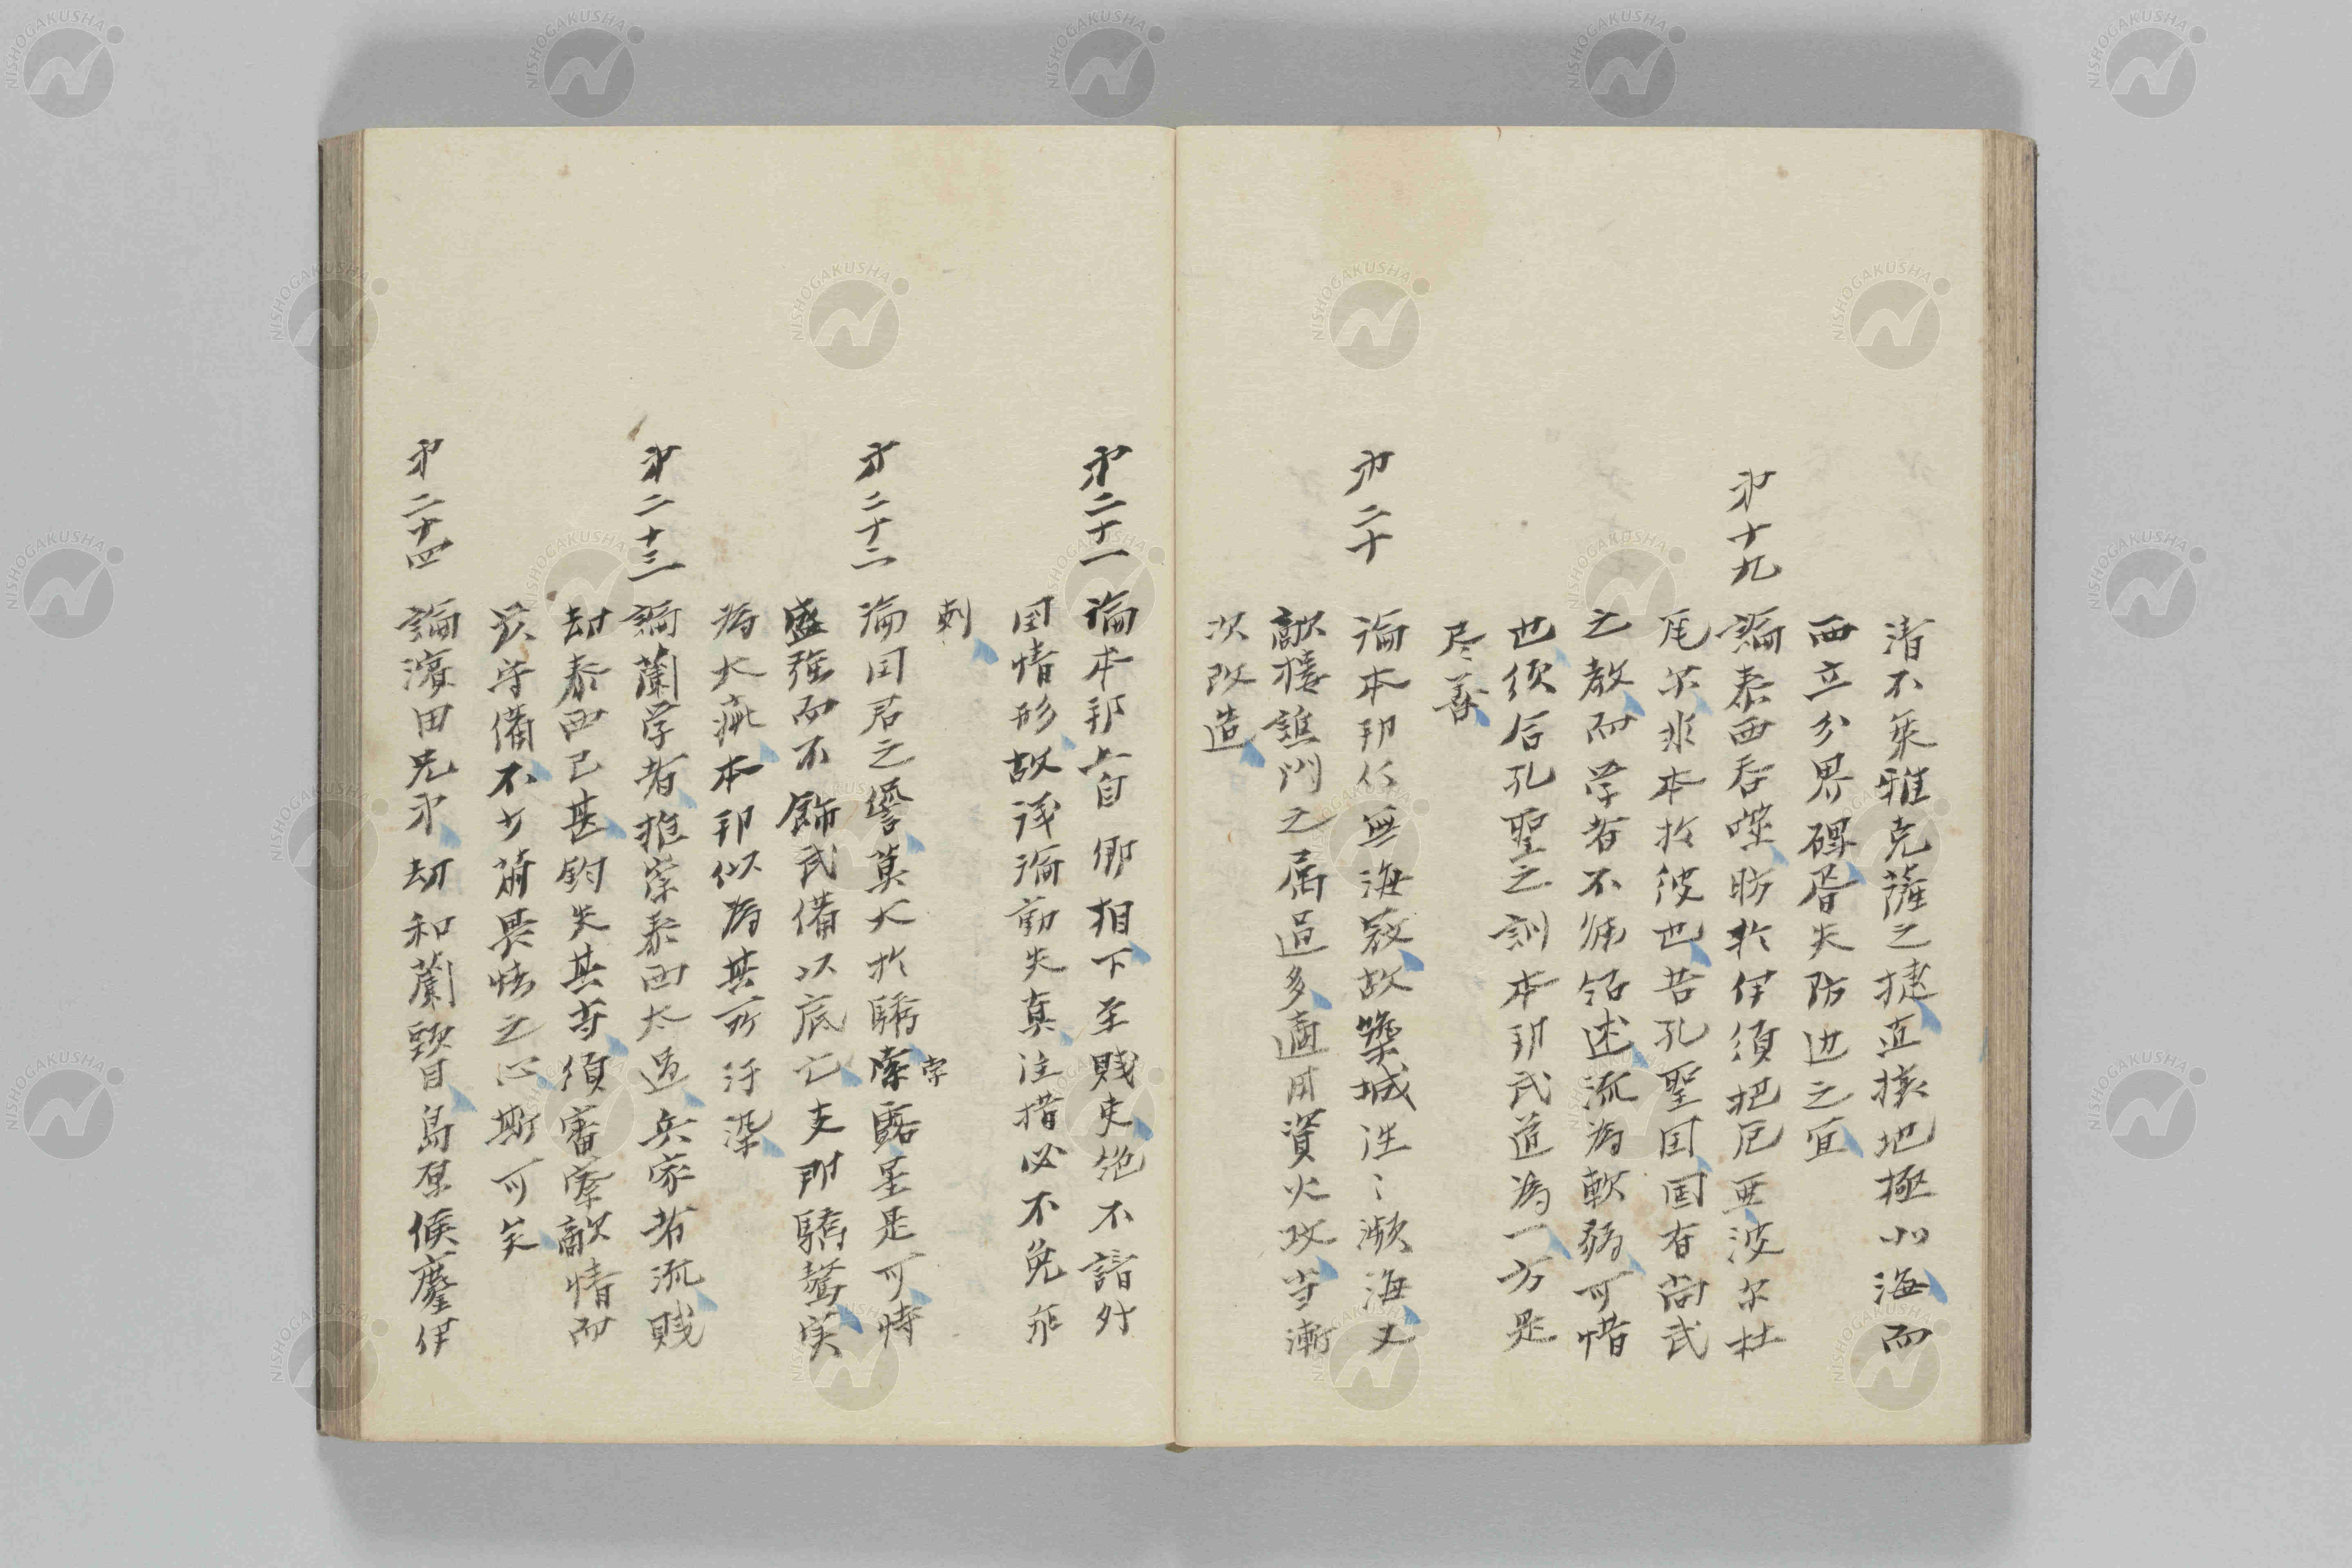 清不策雅克薩之捷直據地極北海而
西立分界碑屑失防边之宜
第十九 論泰西吞噬昉於伊須把尼亜波尔杜
尾尔非本於彼也昔孔聖国国有尚武
之教而学者不紹述流為軟弱可惜
也須后孔聖之訓本邦武道為一方是
尽善
第二十 論本邦仄無海寇故築城往〻瀕海丈
敵楼譙門之属過多適用資火攻当漸
次改造
第二十一 論本邦上自卿相下至賤吏絶不諳外
国情形故議論動失真注措必不免乖
刺
第二十二 論国君之譽莫大於驕索露星是可恃
盛強而不飾武備以底亡支那驕驁実
為大疵本邦似為其所汙染
第二十三 論蘭学者推崇泰西太過兵家者流賤
劫泰西已甚鈞失其方須審察敵情而
厳守備不少萌畏怯之心斯可矣
第二十四 論濱田兄弟劫和蘭酋目島原侯鏖伊